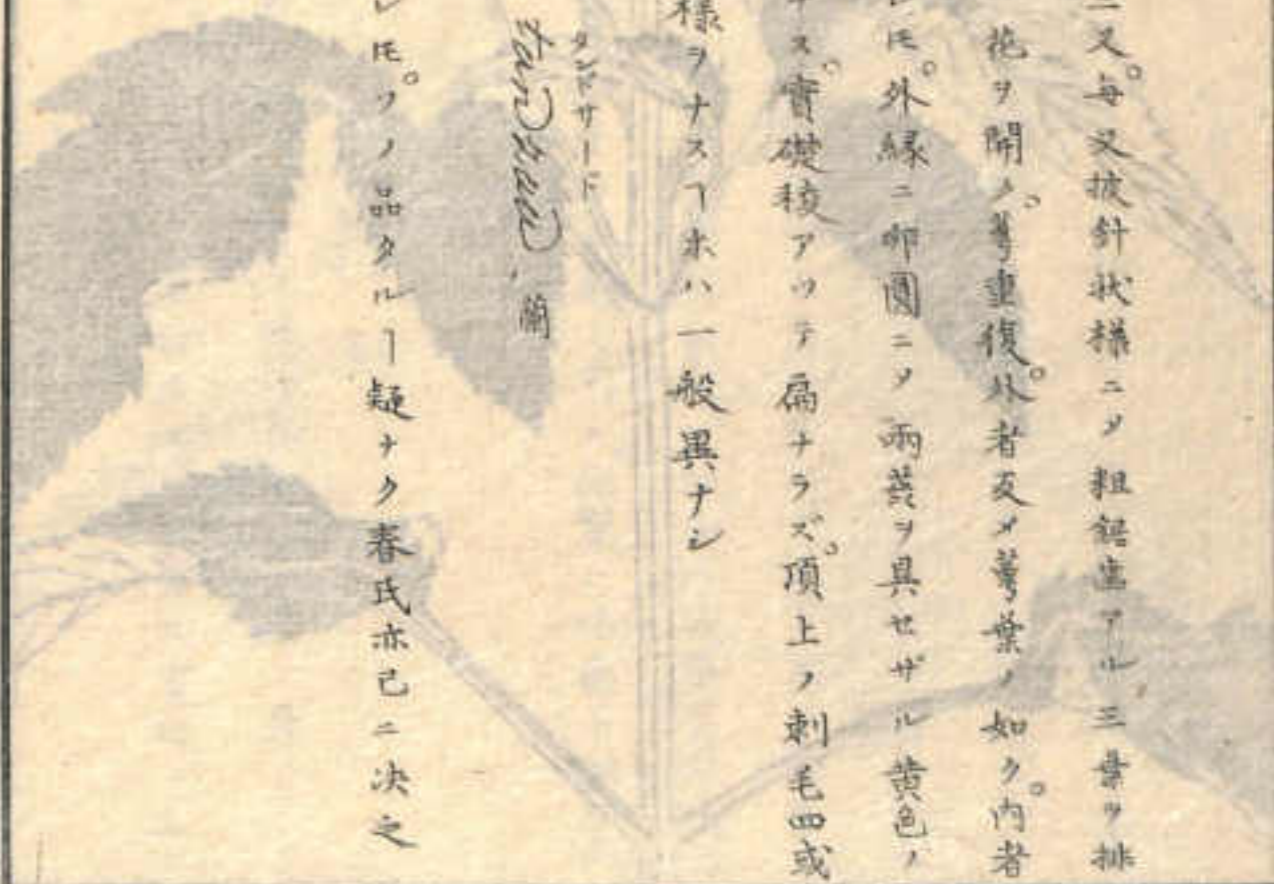 二叉。每叉披針狀樣ニメ粗鋸齒アル三葉ヲ排
花ヲ開ク。萼重復。外者反メ萼葉ノ如ク。内者
レ𪜈。外緣ニ卵圓ニメ兩蕊ヲ具セザル黄色ノ
ナス。實礎稜アツテ扁ナラズ。頂上ノ刺毛四或
樣ヲナスヿ亦ハ一般異ナシ
タンドサード
tandzaad, 蘭
レ𪜈。ソノ品タルヿ疑ナク春氏亦已ニ决之